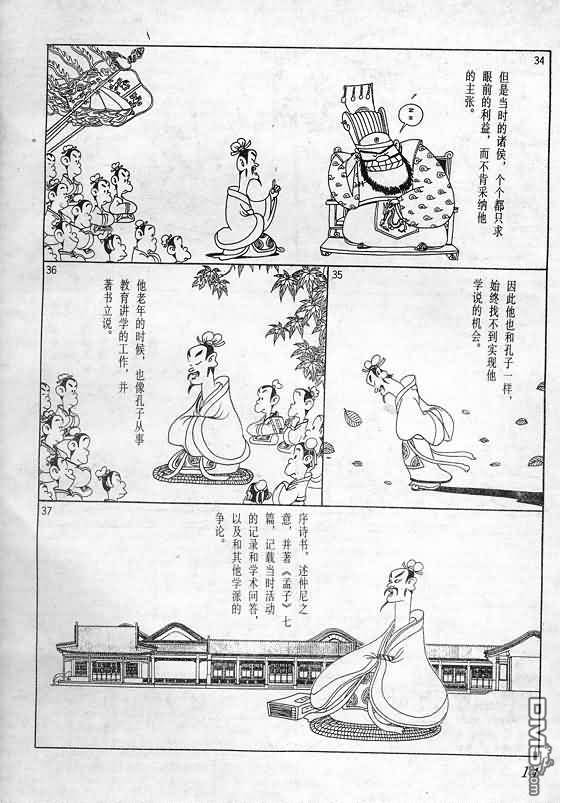 34
但是当时的诸侯，个个都只求
眼前的利益，而不肯采纳他
的主张。
35
因此他也和孔子一样，
始终找不到实现他
学说的机会。
36
他老年的时候，也像孔子从事
教育讲学的工作，并
著书立说。
37
序诗书，述仲尼之
意，并著《孟子》七
篇，记载当时活动
的记录和学术问答，
以及和其他学派的
争论。